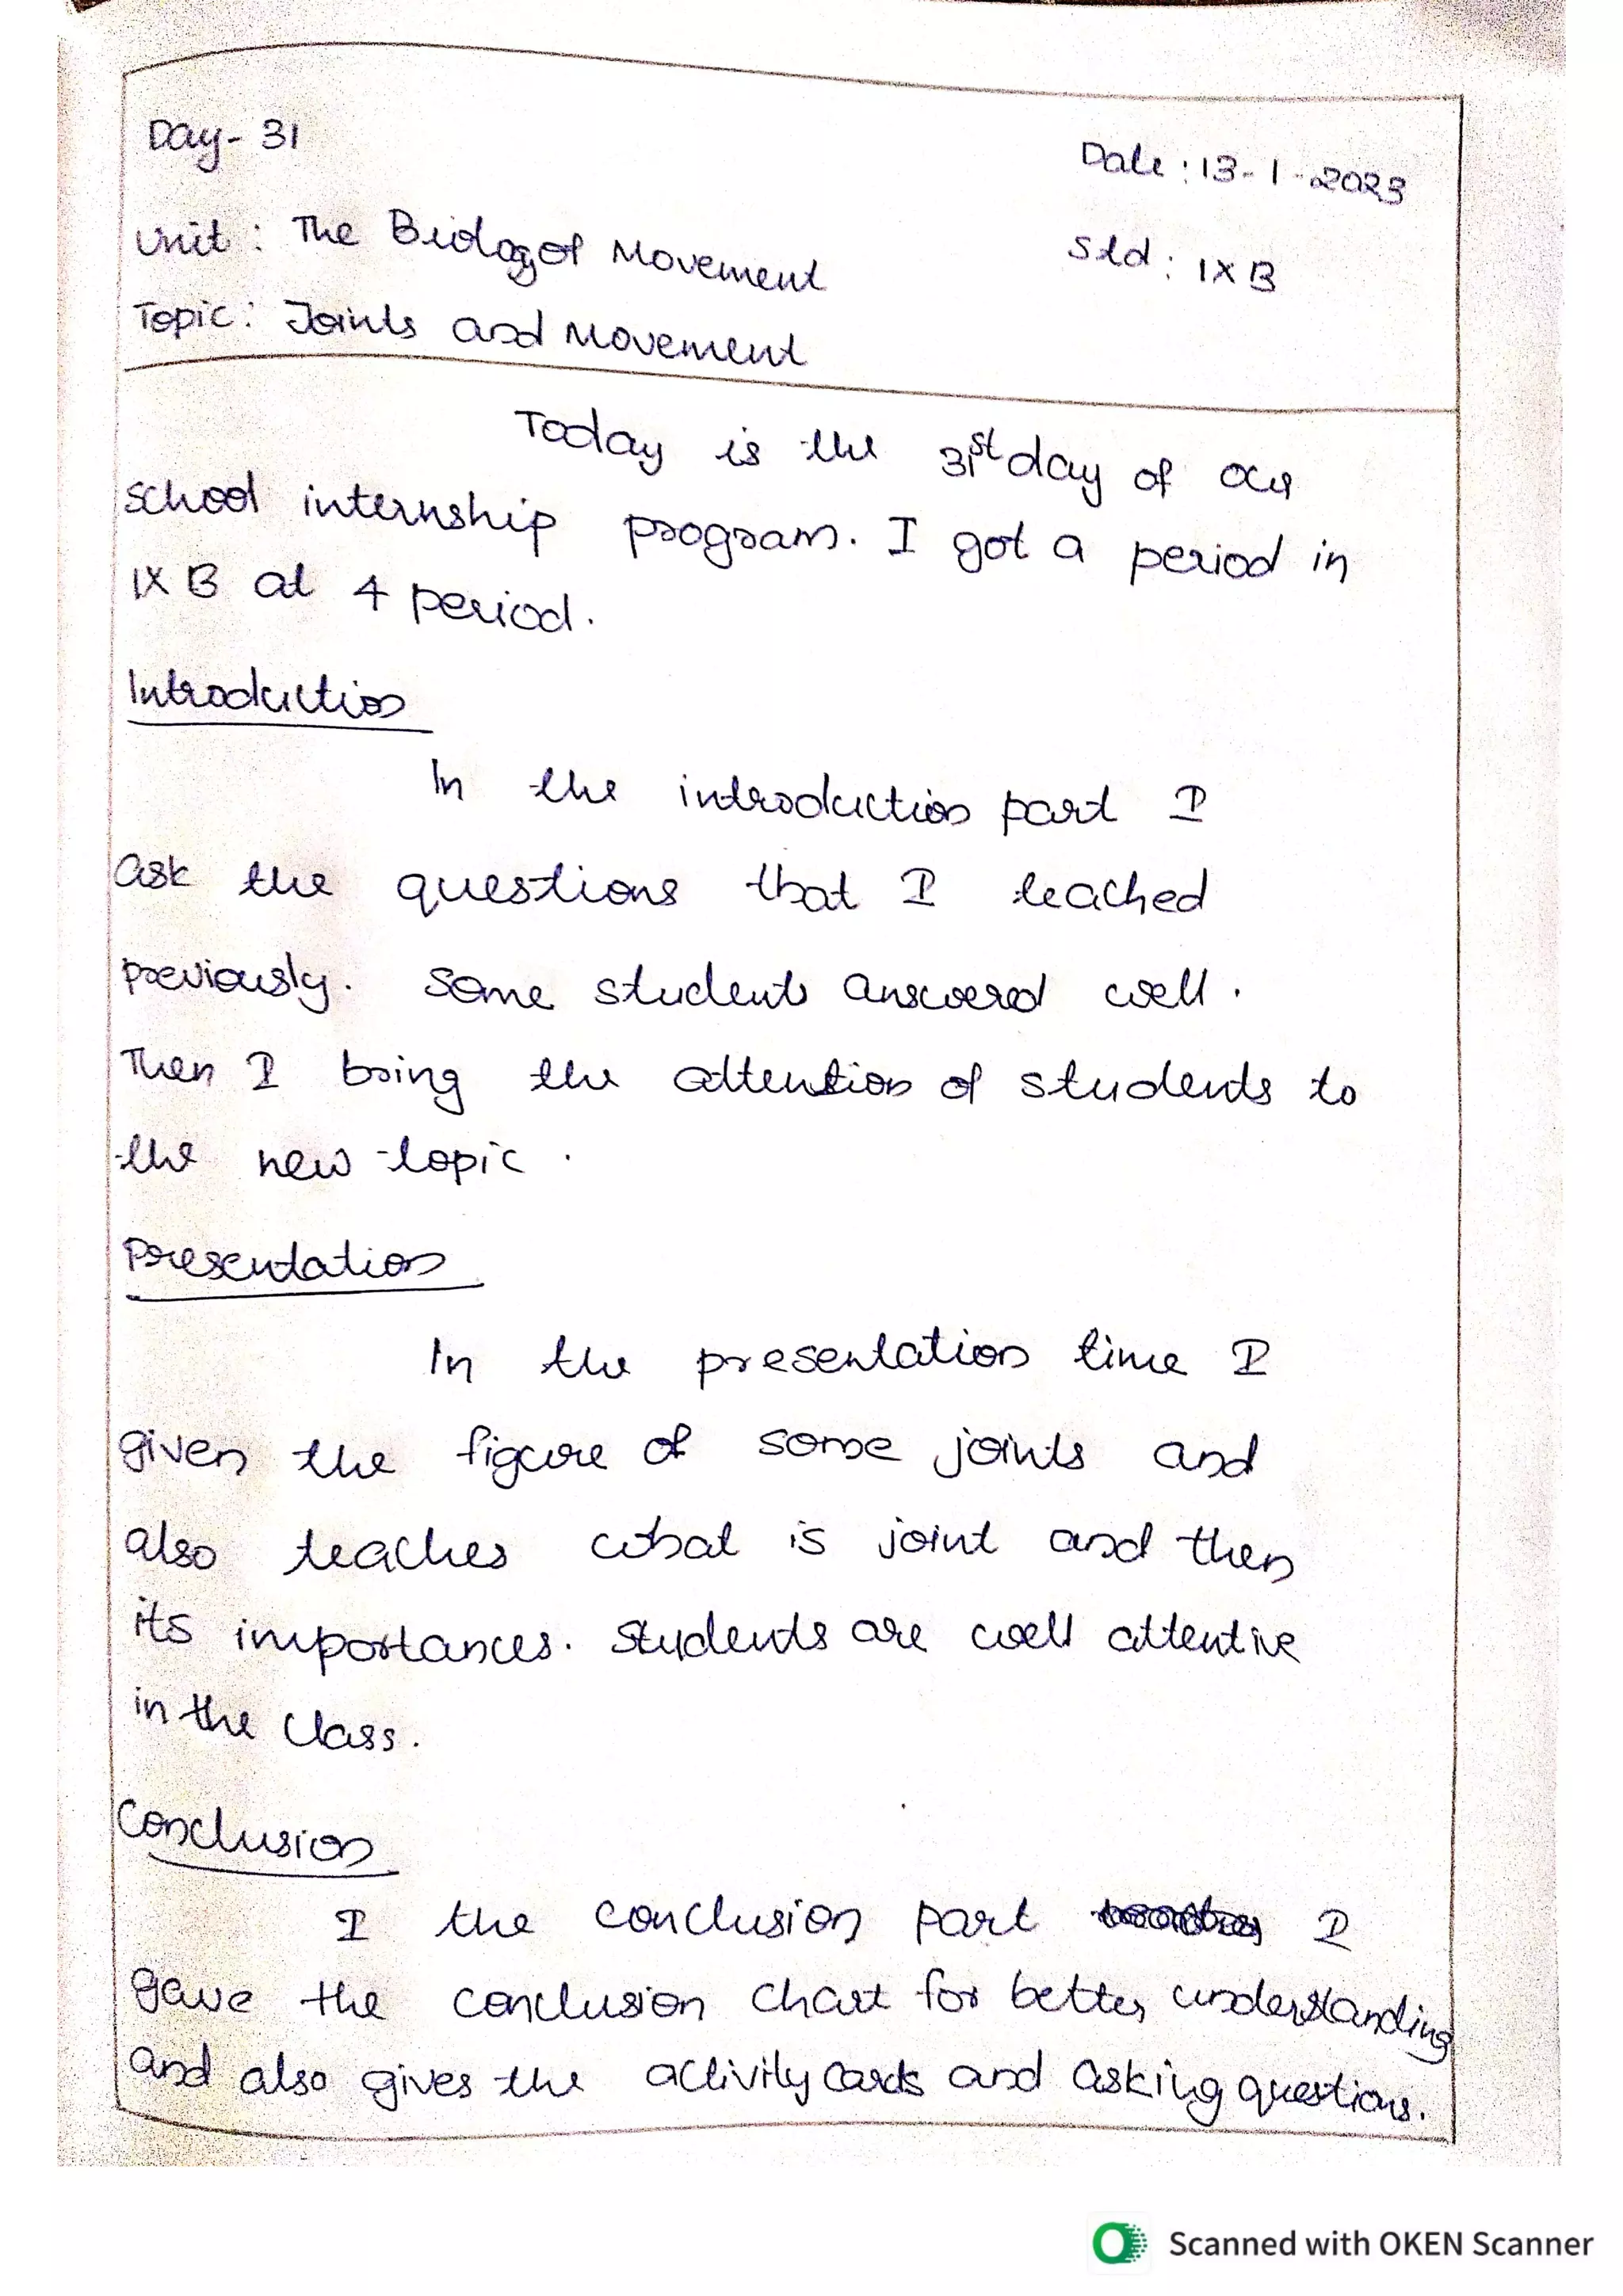 Day- 31
Date : 13-1-2023
Unit : The Biology of Movement
Std : IX B
Topic : Joints and Movement
Today is the 31st day of our
school internship program. I got a period in
IX B at 4 period.
Introduction
In the introduction part I
ask the questions that I teached
previously. Some students answered well.
Then I bring the attention of students to
the new topic.
Presentation
In the presentation time I
given the figure of some joints and
also teaches what is joint and then
its importances. Students are well attentive
in the class.
Conclusion
I the conclusion part I
gave the conclusion chart for better understanding
and also gives the activity cards and asking questions.
Scanned with OKEN Scanner